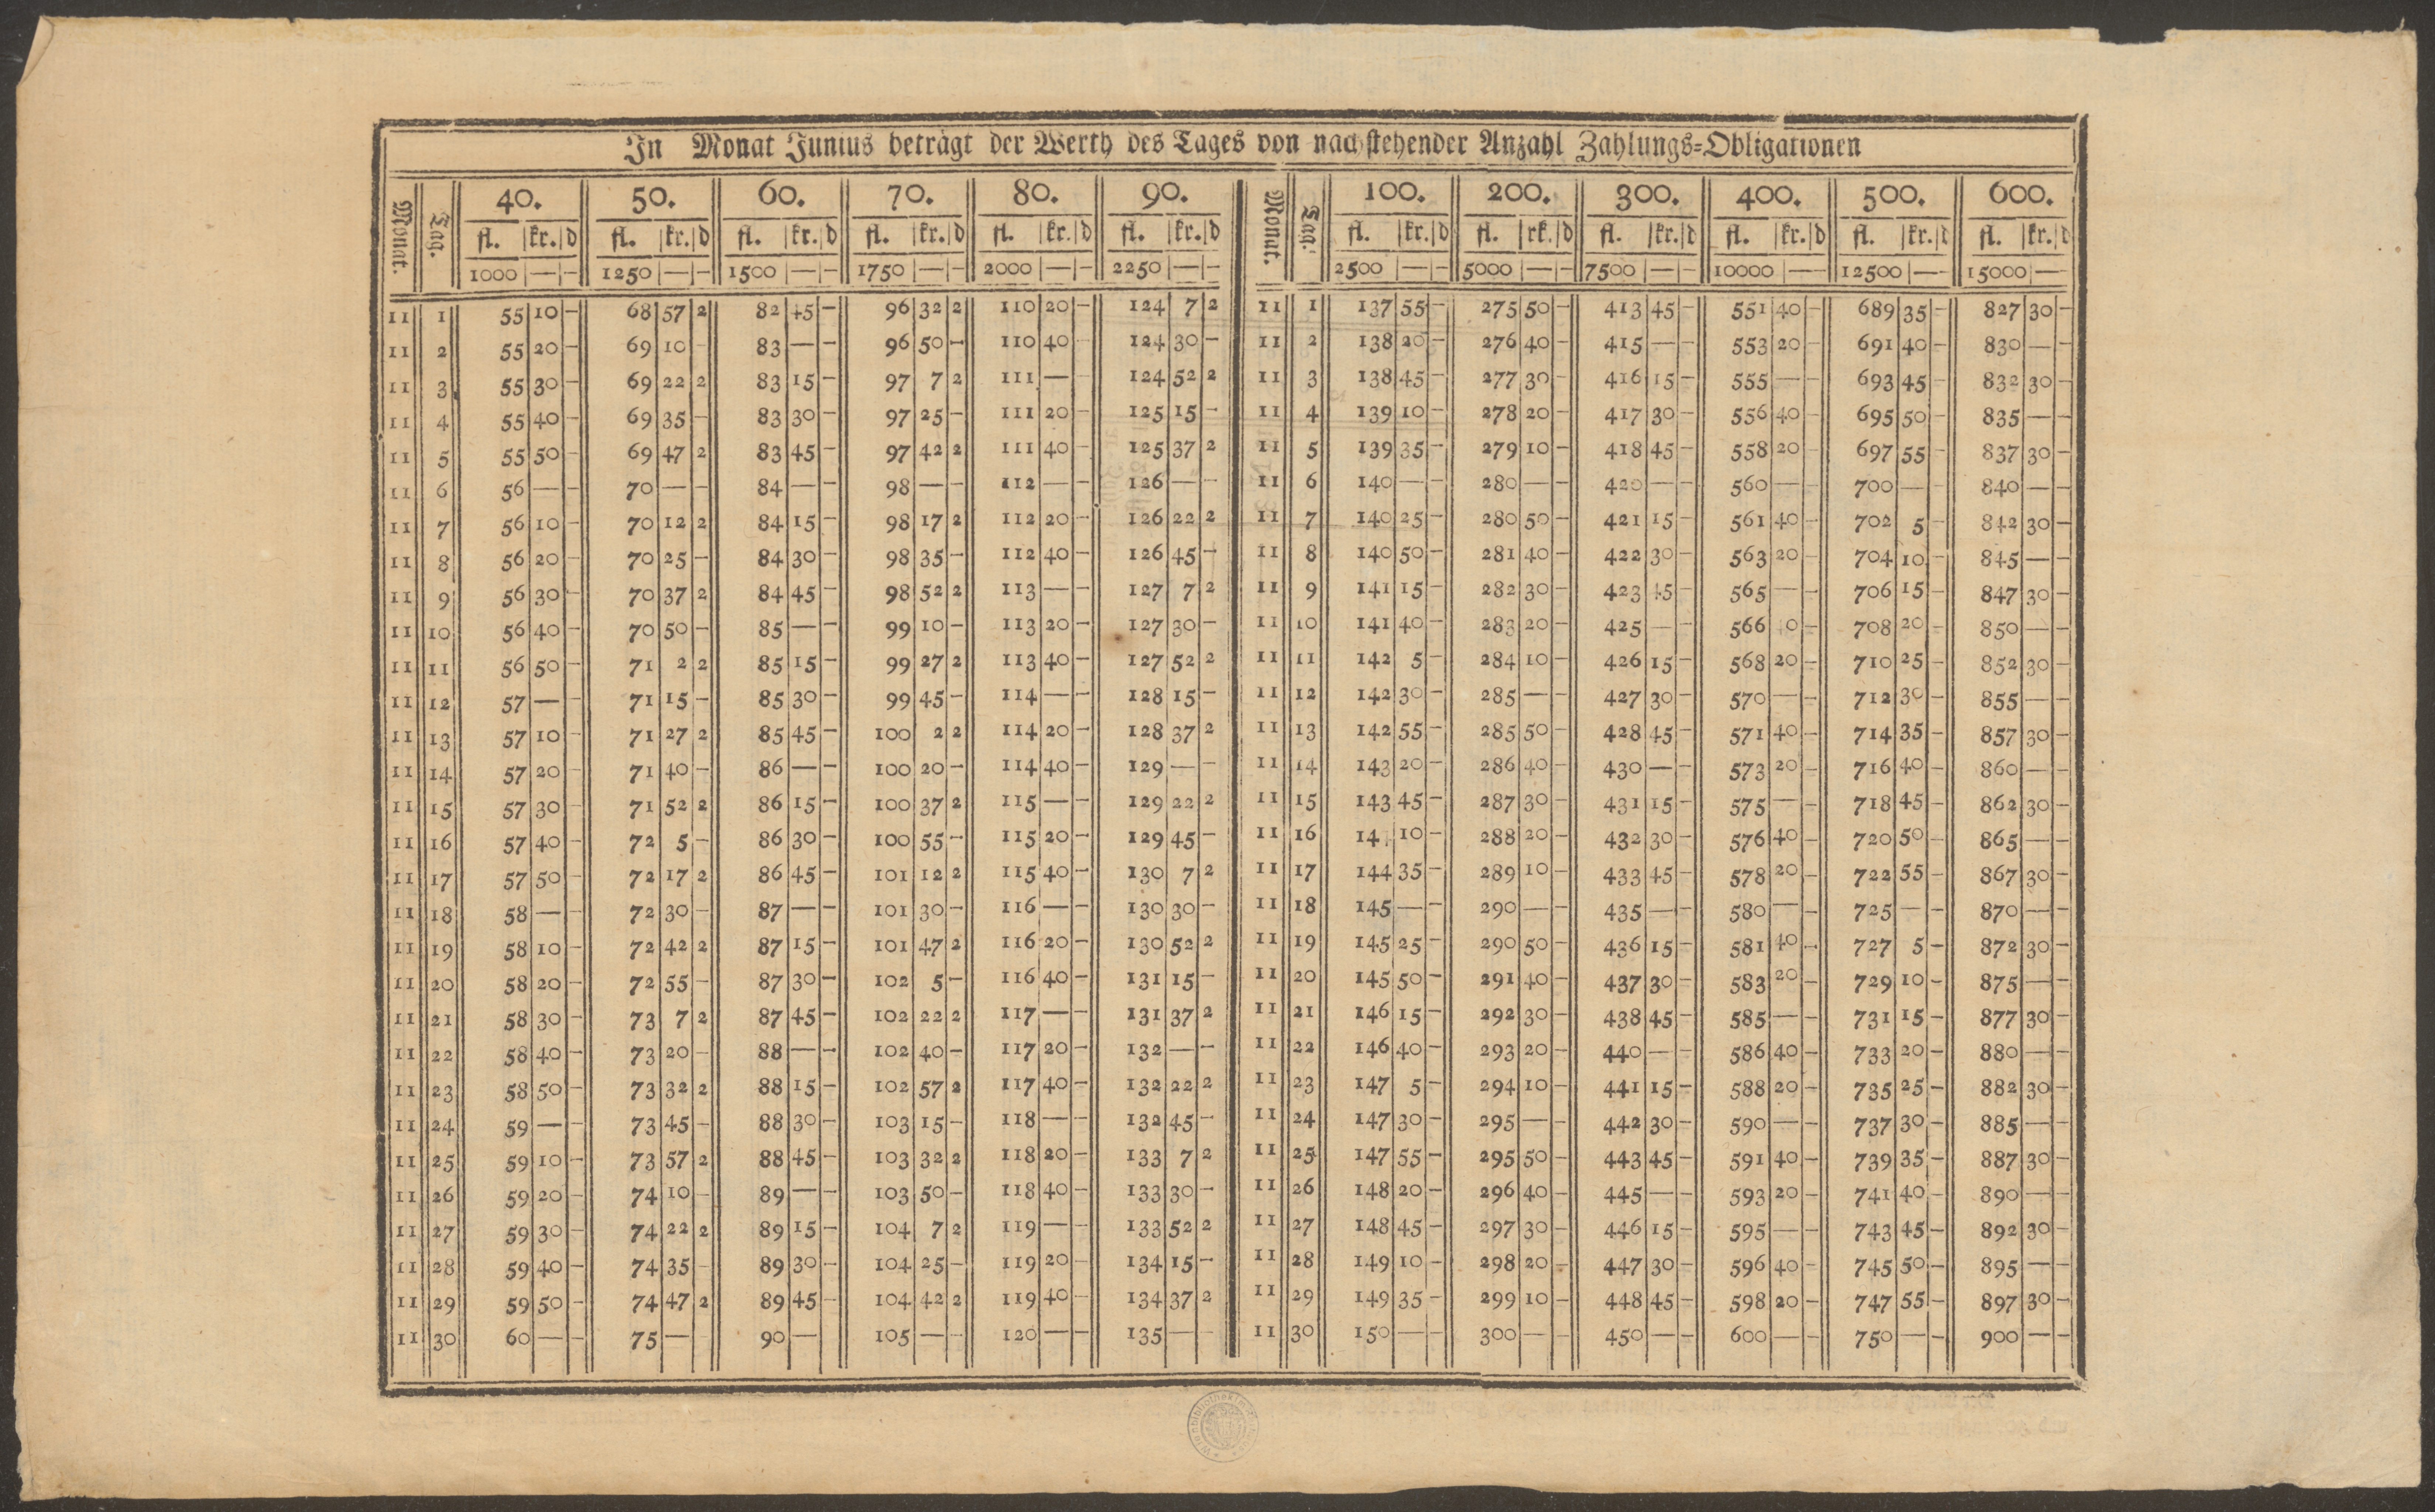 In Monat Junius beträgt der Werth des Tages von nachstehender Anzahl Zahlungs=Obligationen
Monat. Tag. 40. 50. 60. 70. 80. 90. Monat. Tag. 100. 200. 300. 400. 500. 600.
fl. kr. d fl. kr. d fl. kr. d fl. kr. d fl. kr. d fl. kr. d fl. kr. d fl. rk. d fl. kr. d fl. kr. d fl. kr. d fl. kr. d
1000 — — 1250 — — 1500 — — 1750 — — 2000 — — 2250 — — 2500 — — 5000 — — 7500 — — 10000 — — 12500 — — 15000 — —
11 1 55 10 — 68 57 2 82 45 — 96 32 2 110 20 — 124 7 2 11 1 137 55 — 275 50 — 413 45 — 551 40 — 689 35 — 827 30 —
11 2 55 20 — 69 10 — 83 — — 96 50 — 110 40 — 124 30 — 11 2 138 20 — 276 40 — 415 — — 553 20 — 691 40 — 830 — —
11 3 55 30 — 69 22 2 83 15 — 97 7 2 111 — — 124 52 2 11 3 138 45 — 277 30 — 416 15 — 555 — — 693 45 — 832 30 —
11 4 55 40 — 69 35 — 83 30 — 97 25 — 111 20 — 125 15 — 11 4 139 10 — 278 20 — 417 30 — 556 40 — 695 50 — 835 — —
11 5 55 50 — 69 47 2 83 45 — 97 42 2 111 40 — 125 37 2 11 5 139 35 — 279 10 — 418 45 — 558 20 — 697 55 — 837 30 —
11 6 56 — — 70 — — 84 — — 98 — — 112 — — 126 — — 11 6 140 — — 280 — — 420 — — 560 — — 700 — — 840 — —
11 7 56 10 — 70 12 2 84 15 — 98 17 2 112 20 — 126 22 2 11 7 140 25 — 280 50 — 421 15 — 561 40 — 702 5 — 842 30 —
11 8 56 20 — 70 25 — 84 30 — 98 35 — 112 40 — 126 45 — 11 8 140 50 — 281 40 — 422 30 — 563 20 — 704 10 — 845 — —
11 9 56 30 — 70 37 2 84 45 — 98 52 2 113 — — 127 7 2 11 9 141 15 — 282 30 — 423 45 — 565 — — 706 15 — 847 30 —
11 10 56 40 — 70 50 — 85 — — 99 10 — 113 20 — 127 30 — 11 10 141 40 — 283 20 — 425 — — 566 40 — 708 20 — 850 — —
11 11 56 50 — 71 2 2 85 15 — 99 27 2 113 40 — 127 52 2 11 11 142 5 — 284 10 — 426 15 — 568 20 — 710 25 — 852 30 —
11 12 57 — — 71 15 — 85 30 — 99 45 — 114 — — 128 15 — 11 12 142 30 — 285 — — 427 30 — 570 — — 712 30 — 855 — —
11 13 57 10 — 71 27 2 85 45 — 100 2 2 114 20 — 128 37 2 11 13 142 55 — 285 50 — 428 45 — 571 40 — 714 35 — 857 30 —
11 14 57 20 — 71 40 — 86 — — 100 20 — 114 40 — 129 — — 11 14 143 20 — 286 40 — 430 — — 573 20 — 716 40 — 860 — —
11 15 57 30 — 71 52 2 86 15 — 100 37 2 115 — — 129 22 2 11 15 143 45 — 287 30 — 431 15 — 575 — — 718 45 — 862 30 —
11 16 57 40 — 72 5 — 86 30 — 100 55 — 115 20 — 129 45 — 11 16 10 — 288 20 — 432 30 — 576 40 — 720 50 — 865 — —
11 17 57 50 — 72 17 2 86 45 — 101 12 2 115 40 — 130 7 2 11 17 144 35 — 289 10 — 433 45 — 578 20 — 722 55 — 867 30 —
11 18 58 — — 72 30 — 87 — — 101 30 — 116 — — 130 30 — 11 18 145 — — 290 — — 435 — — 580 — — 725 — — 870 — —
11 19 58 10 — 72 42 2 87 15 — 101 47 2 116 20 — 130 52 2 11 19 145 25 — 290 50 — 436 15 — 581 40 — 727 5 — 872 30 —
11 20 58 20 — 72 55 — 87 30 — 102 5 — 116 40 — 131 15 — 11 20 145 50 — 291 40 — 437 30 — 583 20 — 729 10 — 875 — —
11 21 58 30 — 73 7 2 87 45 — 102 22 2 117 — — 131 37 2 11 21 146 15 — 292 30 — 438 45 — 585 — — 731 15 — 877 30 —
11 22 58 40 — 73 20 — 88 — — 102 40 — 117 20 — 132 — — 11 22 146 40 — 293 20 — 440 — — 586 40 — 733 20 — 880 — —
11 23 58 50 — 73 32 2 88 15 — 102 57 2 117 40 — 132 22 2 11 23 147 5 — 294 10 — 441 15 — 588 20 — 735 25 — 882 30 —
11 24 59 — — 73 45 — 88 30 — 103 15 — 118 — — 132 45 — 11 24 147 30 — 295 — — 442 30 — 590 — — 737 30 — 885 — —
11 25 59 10 — 73 57 2 88 45 — 103 32 2 118 20 — 133 7 2 11 25 147 55 — 295 50 — 443 45 — 591 40 — 739 35 — 887 30 —
11 26 59 20 — 74 10 — 89 — — 103 50 — 118 40 — 133 30 — 11 26 148 20 — 296 40 — 445 — — 593 20 — 741 40 — 890 — —
11 27 59 30 — 74 22 2 89 15 — 104 7 2 119 — — 133 52 2 11 27 148 45 — 297 30 — 446 15 — 595 — — 743 45 — 892 30 —
11 28 59 40 — 74 35 — 89 30 — 104 25 — 119 20 — 134 15 — 11 28 149 10 — 298 20 — 447 30 — 596 40 — 745 50 — 895 — —
11 29 59 50 — 74 47 2 89 45 — 104 42 2 119 40 — 134 37 2 11 29 149 35 — 299 10 — 448 45 — 598 20 — 747 55 — 897 30 —
11 30 60 — — 75 — — 90 — 105 — — 120 — — 135 — — 11 30 150 — — 300 — — 450 — — 600 — — 750 — — 900 — —